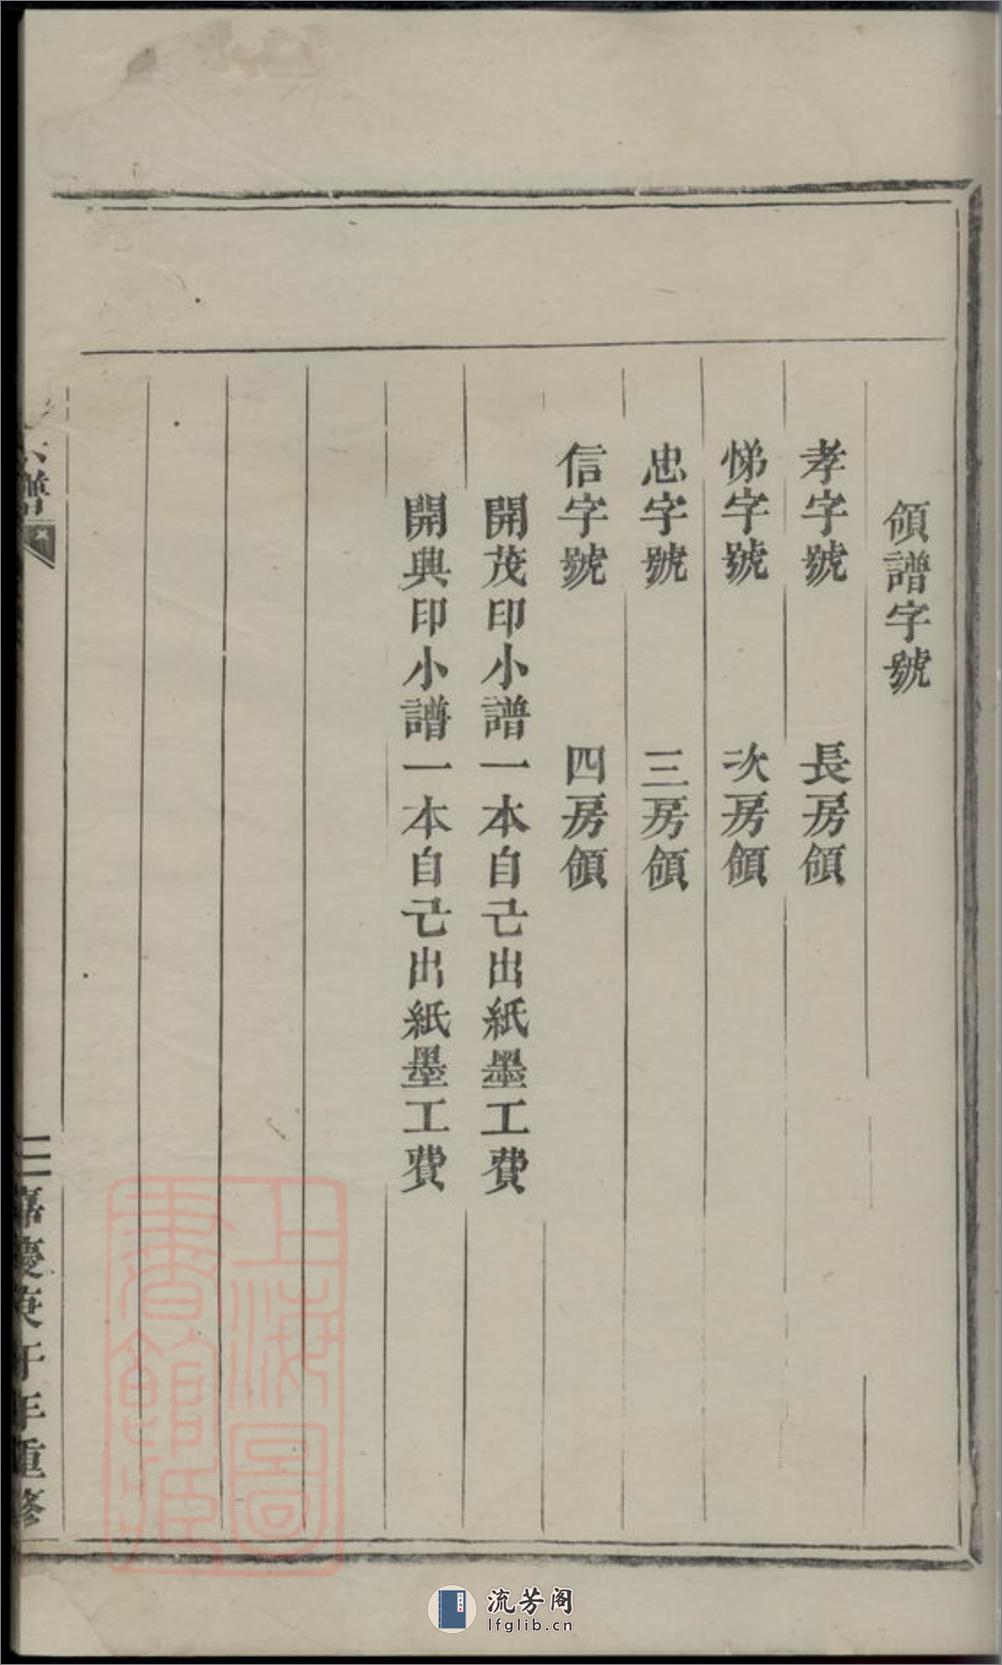 領譜字號
孝字號 長房領
悌字號 次房領
忠字號 三房領
信字號 四房領
開茂印小譜一本自己出紙墨工費
開興印小譜一本自己出紙墨工費
譜
二 嘉慶庚午年重修
上海圖
書館藏
流芳阁
lfglib.cn